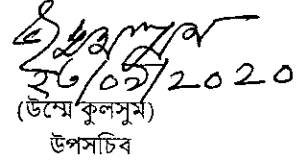 ২৩/০২/2020
(উম্মে কুলসুম)
উপসচিব